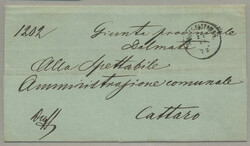 1202
Giunta provinciale
Dalmata
Alla Spettabile
Amministrazione comunale
Cattaro